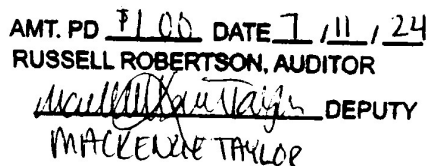 AMT. PD $1.00 DATE 7 / 11 / 24
RUSSELL ROBERTSON, AUDITOR
DEPUTY
MACKENZIE TAYLOR